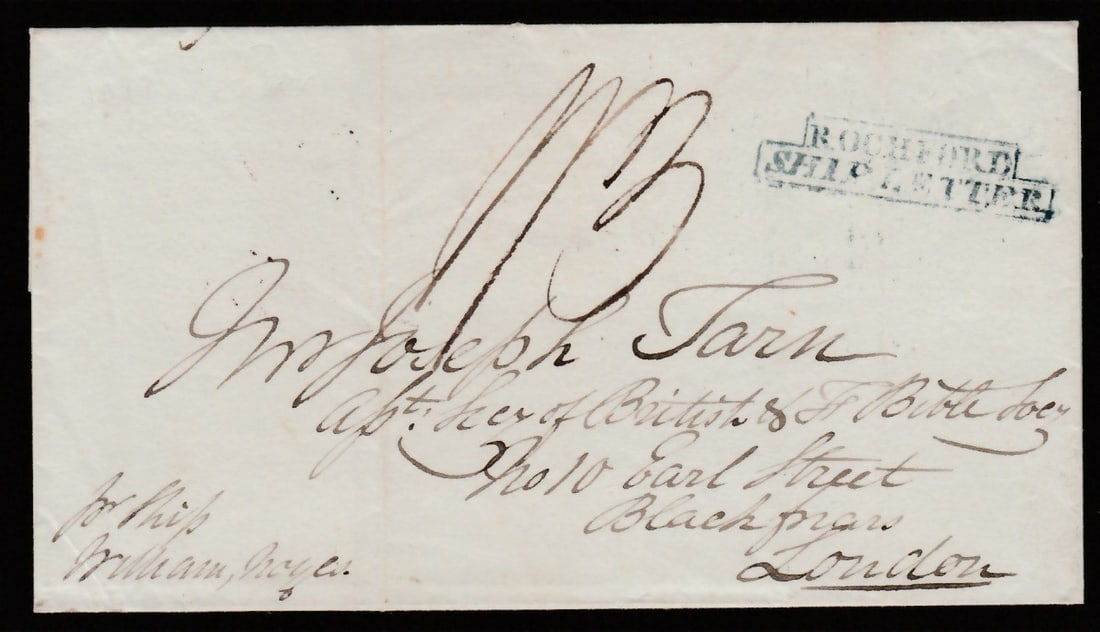 ROCHFORD
SHIP LETTER
1/3
Mr Joseph Tarn
Asst. Secy of British & Fn Bible Socy
No 10 Earl Street
Blackfriars
London
pr Ship
William, Noyes.